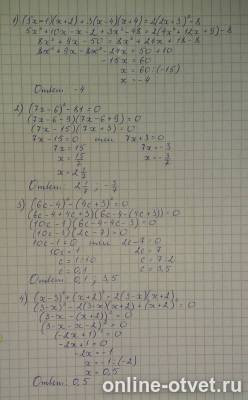 1) (5x-1)(x+2)+3(x-4)(x+4)=2(2x+3)²-8
5x²+10x-x-2+3x²-48=2(4x²+12x+9)-8
8x²+9x-50=8x²+24x+18-8
8x²+9x-8x²-24x=50+10
-15x=60
x=60:(-15)
x=-4
Ответ: -4
2) (7x-6)²-81=0
(7x-6-9)(7x-6+9)=0
(7x-15)(7x+3)=0
7x-15=0 или 7x+3=0
7x=15 7x=-3
x=15/7 x=-3/7
x=2 1/7
Ответ: 2 1/7, -3/7
3) (6c-4)²-(4c+3)²=0
(6c-4+4c+3)(6c-4-(4c+3))=0
(10c-1)(6c-4-4c-3)=0
(10c-1)(2c-7)=0
10c-1=0 или 2c-7=0
10c=1 2c=7
c=1:10 c=7:2
c=0,1 c=3,5
Ответ: 0,1, 3,5
4) (x-3)²+(x+2)²=2(3-x)(x+2)
(3-x)²-2(3-x)(x+2)+(x+2)=0
(3-x-(x+2))²=0
(3-x-x-2)²=0
(-2x+1)²=0
-2x+1=0
-2x=-1
x=-1:(-2)
x=0,5
Ответ: 0,5
online-otvet.ru